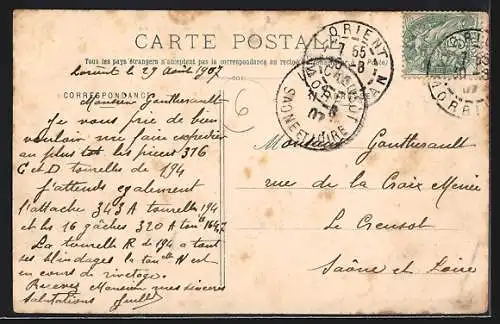 CARTE POSTALE
Tous les pays étrangers n'acceptent pas la correspondance au recto
Lorient le 29 août 1907
CORRESPONDANCE
Monsieur Gauthurault
Je vous prie de bien
vouloir me faire expédier
au plus tot les pièces 376
C et D tourelles de 194
J'attends également
l'attache 343 A tourelle 194
et les 16 gâches 320 A 164,7
La tourelle R de 194 a tout
ses blindages la H est
en cours de rivetage.
Recevez Monsieur mes sincères
Salutations
6
LORIENT
7 55
30-8
07
MORBIHAN
SAONE ET LOIRE
Monsieur Gauthurault
rue de la Croix Menée
Le Creusot
Saône et Loire